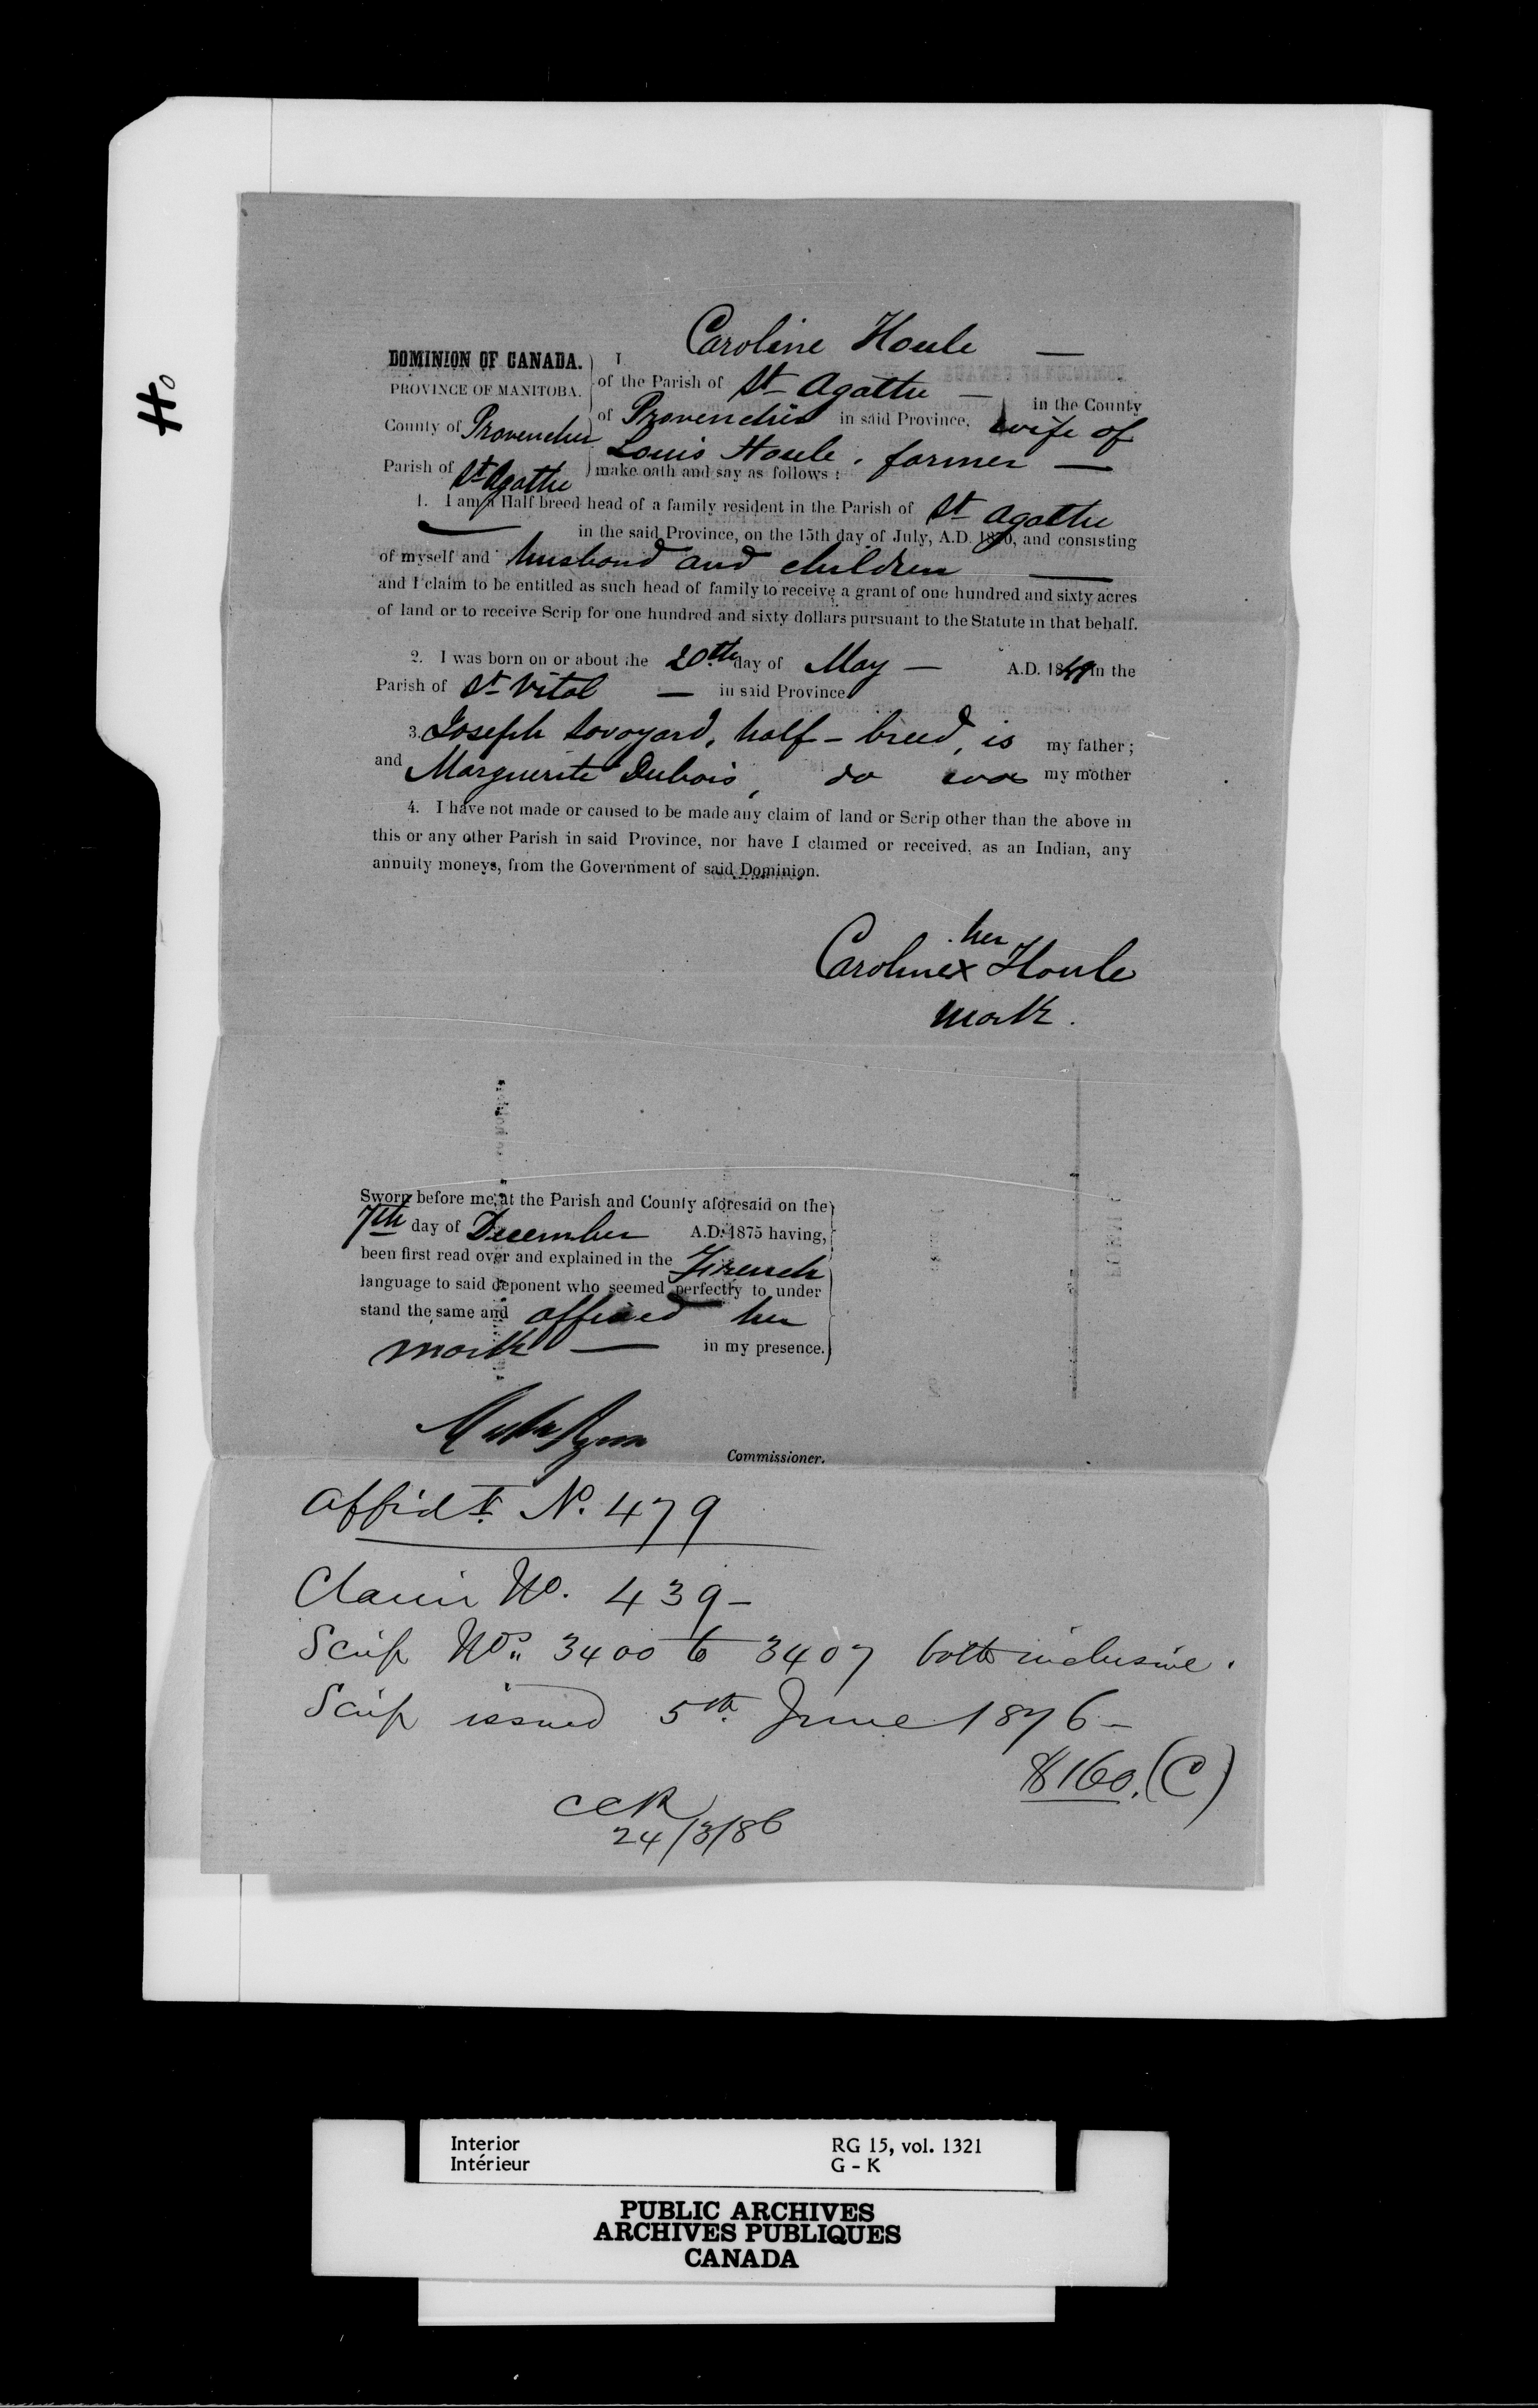 Ho
Caroline Houle —
DOMINION OF CANADA. I
of the Parish of St Agathe —
PROVINCE OF MANITOBA.
in the County
of Provencher in said Province, wife of
County of Provencher
Louis Houle, farmer —
Parish of St Agathe
make oath and say as follows :
1. I am a Half breed head of a family resident in the Parish of St Agathe
— in the said Province, on the 15th day of July, A.D. 1870, and consisting
of myself and husband and children —
and I claim to be entitled as such head of family to receive a grant of one hundred and sixty acres
of land or to receive Scrip for one hundred and sixty dollars pursuant to the Statute in that behalf.
2. I was born on or about the 20th day of May — A.D. 18 in the
Parish of St Vital — in said Province
3. Joseph Savoyard, half-breed, is my father ;
and Marguerite Dubois, do was my mother
4. I have not made or caused to be made any claim of land or Scrip other than the above in
this or any other Parish in said Province, nor have I claimed or received, as an Indian, any
annuity moneys, from the Government of said Dominion.
her
Caroline x Houle
mark.
Sworn before me, at the Parish and County aforesaid on the
7th day of December A.D. 1875 having,
been first read over and explained in the French
language to said deponent who seemed perfectly to under
stand the same and affixed her
mark — in my presence.
Commissioner.
Affidt. No. 479
Claim No. 439 —
Scrip Nos. 3400 to 3407 both inclusive.
Scrip issued 5th June 1876 —
$160. (C)
CCR
24/3/86
Interior RG 15, vol. 1321
Intérieur G - K
PUBLIC ARCHIVES
ARCHIVES PUBLIQUES
CANADA